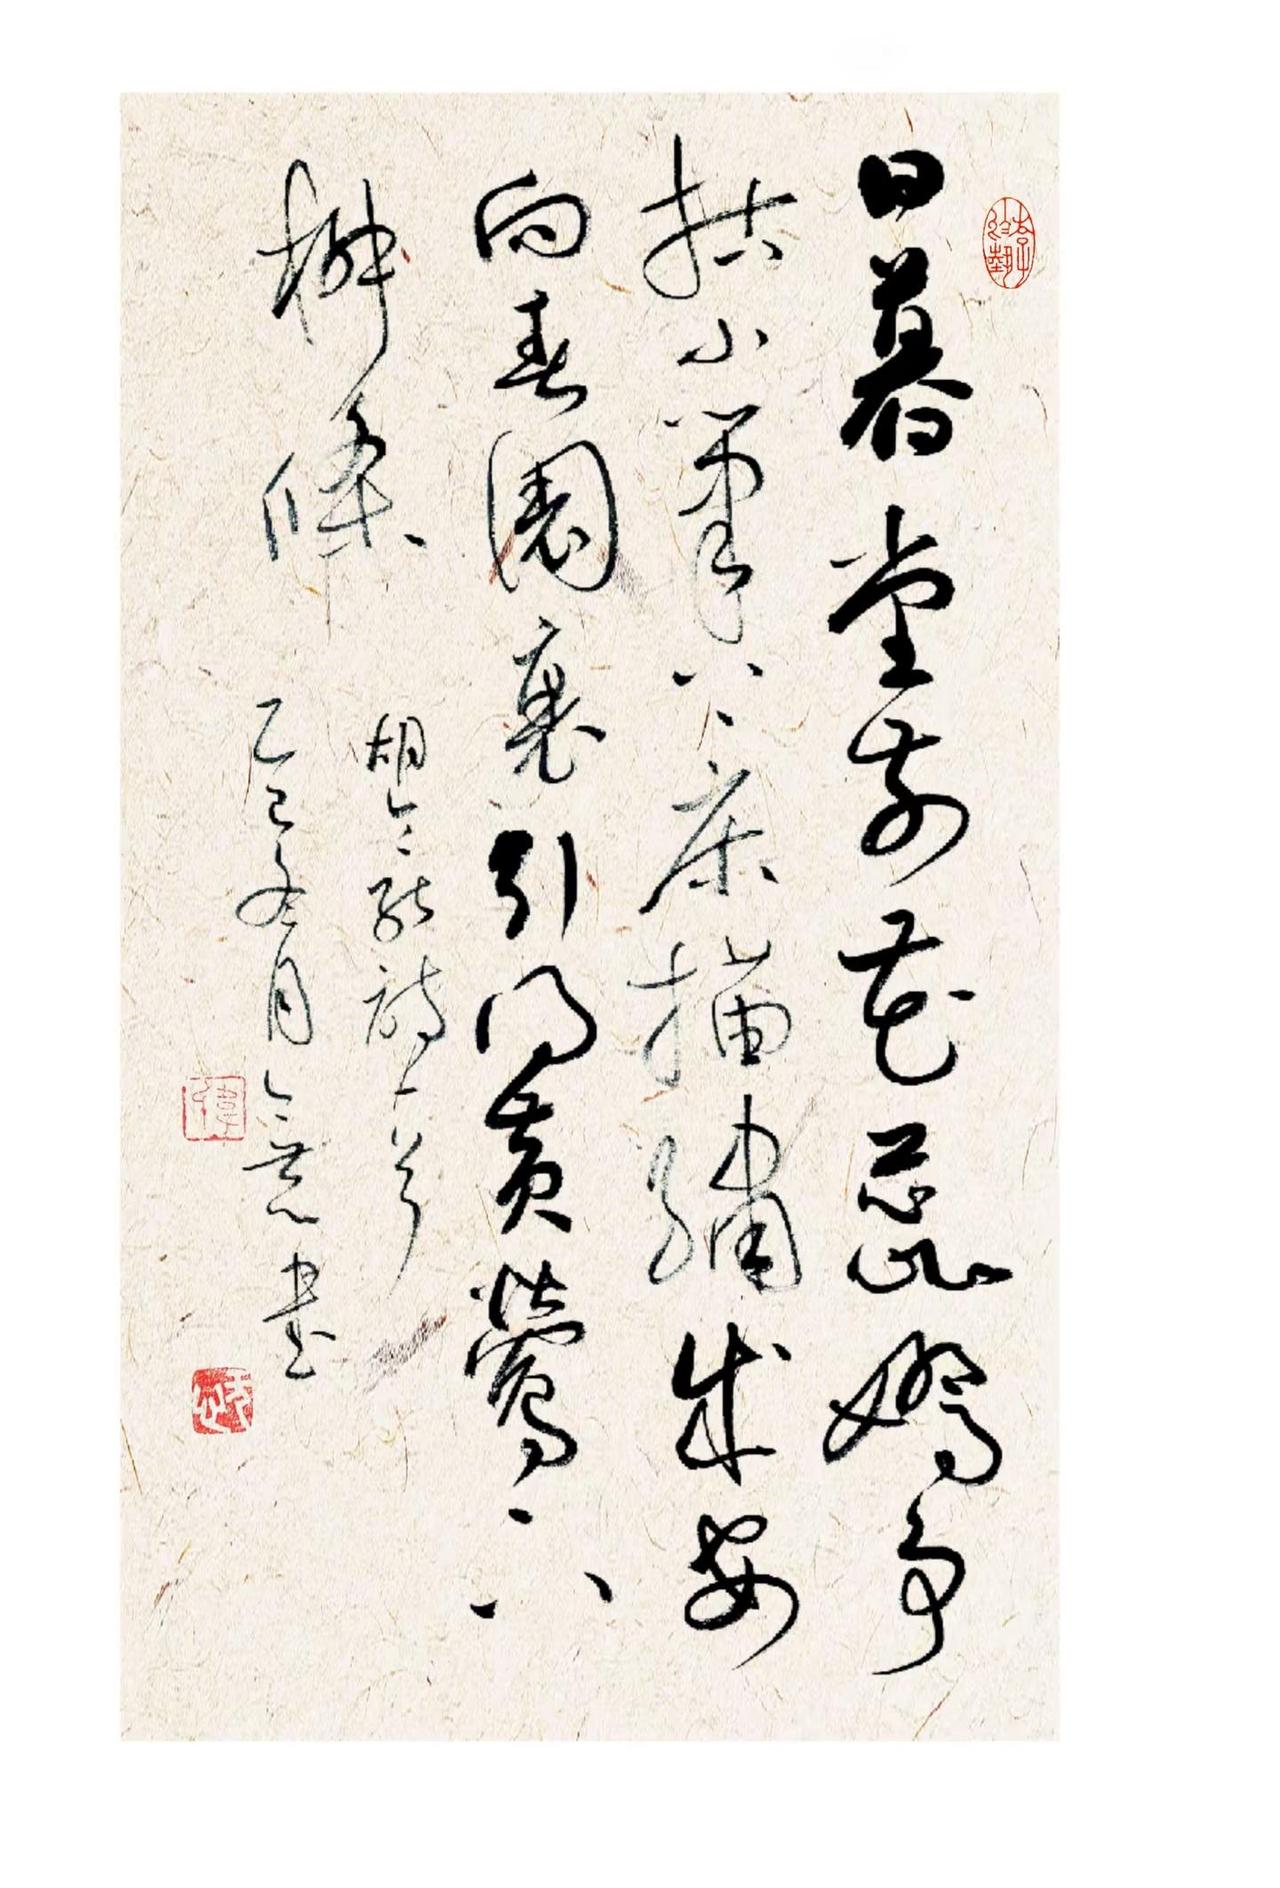 日暮堂前花蕊嬌争
拈小筆上床描繡成安
向春園裏引得黄鶯下
柳條
胡令能詩一首
乙巳冬月書